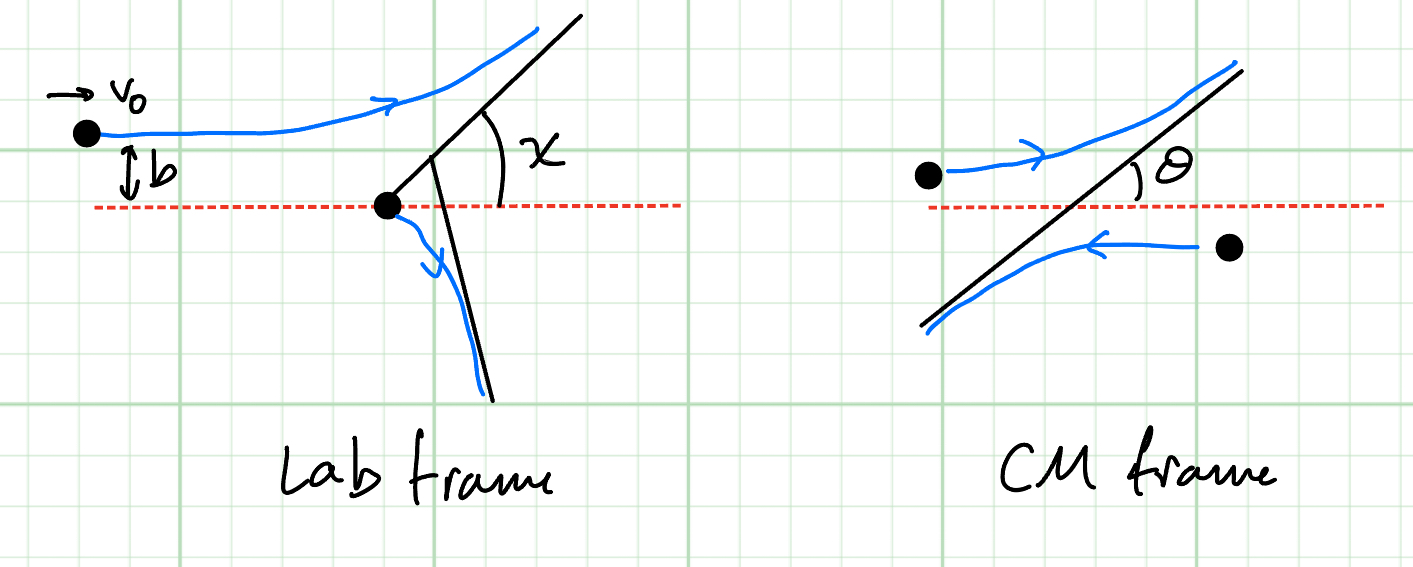 → v₀
b
χ
θ
Lab frame
CM frame